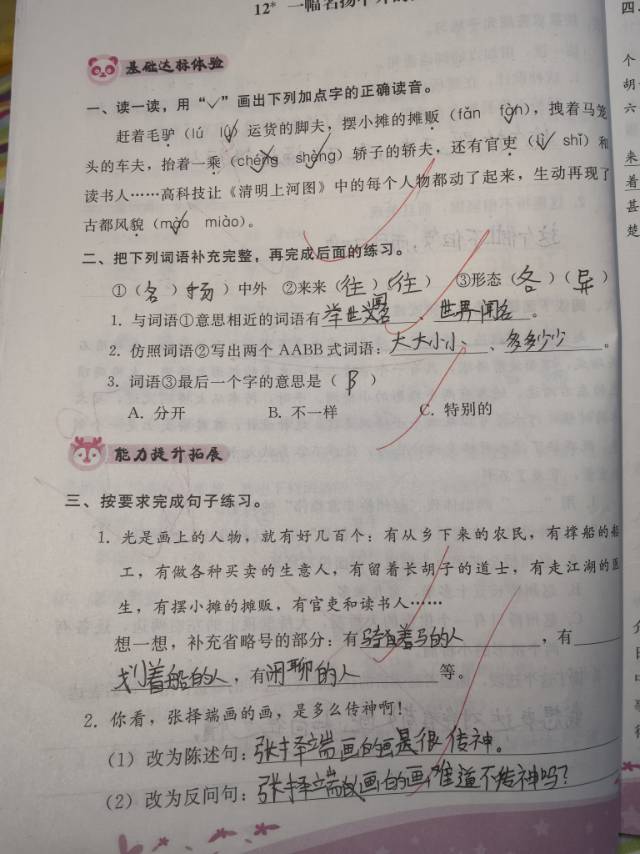 12* 一幅名扬中外的
基础达标体验
一、读一读，用“√”画出下列加点字的正确读音。
赶着毛驴（lú lǘ）运货的脚夫，摆小摊的摊贩（fān fàn），拽着马笼
头的车夫，抬着一乘（chéng shèng）轿子的轿夫，还有官吏（lì shǐ）和
读书人……高科技让《清明上河图》中的每个人物都动了起来，生动再现了
古都风貌（mào miào）。
二、把下列词语补充完整，再完成后面的练习。
①（名）（扬）中外 ②来来（往）（往） ③形态（各）（异）
1. 与词语①意思相近的词语有举世闻名、世界闻名。
2. 仿照词语②写出两个 AABB 式词语：大大小小、多多少少。
3. 词语③最后一个字的意思是（B）
A. 分开 B. 不一样 C. 特别的
能力提升拓展
三、按要求完成句子练习。
1. 光是画上的人物，就有好几百个：有从乡下来的农民，有撑船的船
工，有做各种买卖的生意人，有留着长胡子的道士，有走江湖的医
生，有摆小摊的摊贩，有官吏和读书人……
想一想，补充省略号的部分：有骑着马的人，有
划着船的人，有闲聊的人等。
2. 你看，张择端画的画，是多么传神啊！
（1）改为陈述句：张择端画的画是很传神。
（2）改为反问句：张择端画的画，难道不传神吗？
四、
个
胡
六
来
着
甚
楚